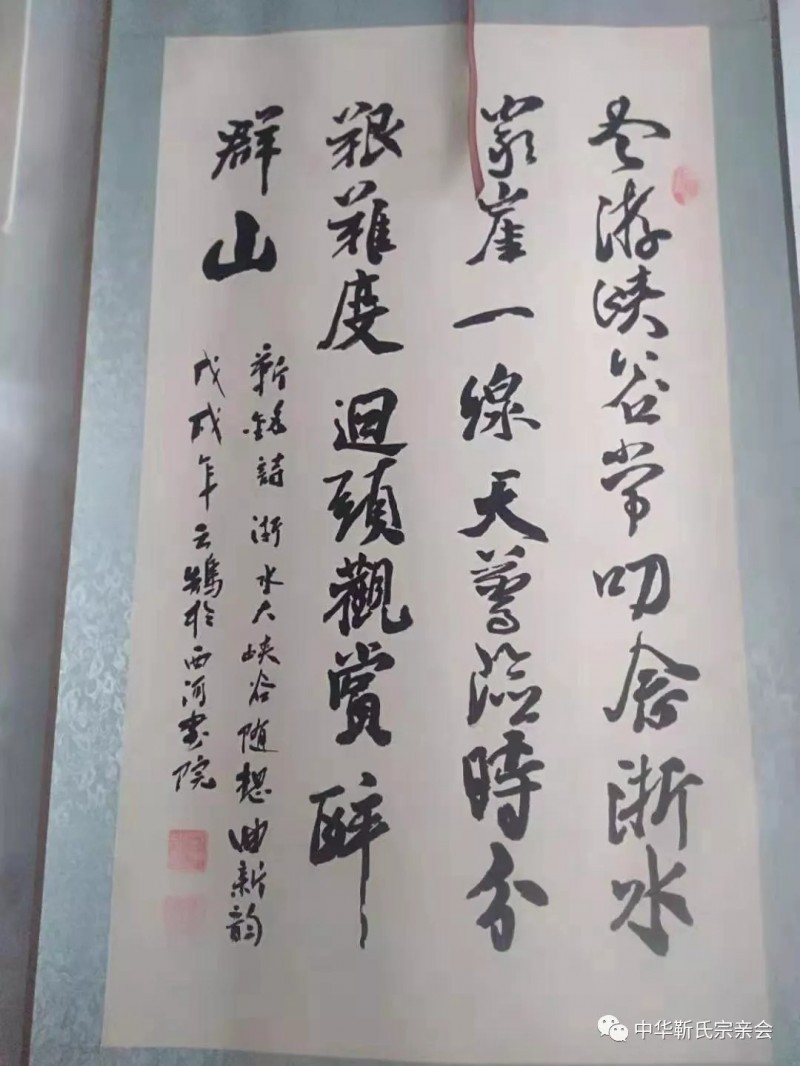 冬游峡谷常叨念浙水
崖一線天臨時分
艱難度迴頭觀賞醉
群山
靳詩浙水大峡谷随想曲新韵
戊戌年云鶴於西河書院
中华靳氏宗亲会